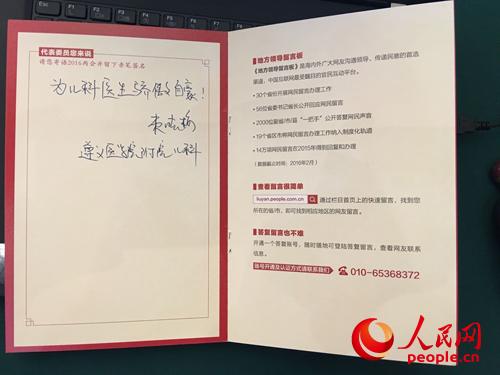 代表委员您来说
请您寄语2016两会并留下亲笔签名
为儿科医生骄傲自豪！
遵义医学院附院儿科
地方领导留言板
《地方领导留言板》是海内外广大网友沟通领导、传递民意的首选
渠道，中国互联网最受瞩目的官民互动平台。
·30个省份开展网民留言办理工作
·56位省委书记省长公开回应网民留言
·2000位副省/市/县“一把手”公开答复网民声音
·19个省区市将网民留言办理工作纳入制度化轨道
·14万项网民留言在2015年得到回复和办理
(数据截止时间：2016年2月)
查看留言很简单
liuyan.people.com.cn
通过栏目首页上的快速留言，找到您
所在的省/市，即可找到相应地区的网友留言。
答复留言也不难
开通一个答复账号，随时随地可登陆答复留言，查看网友联系
信息。
账号开通及认证方式请联系我们
010-65368372
人民网
people.cn